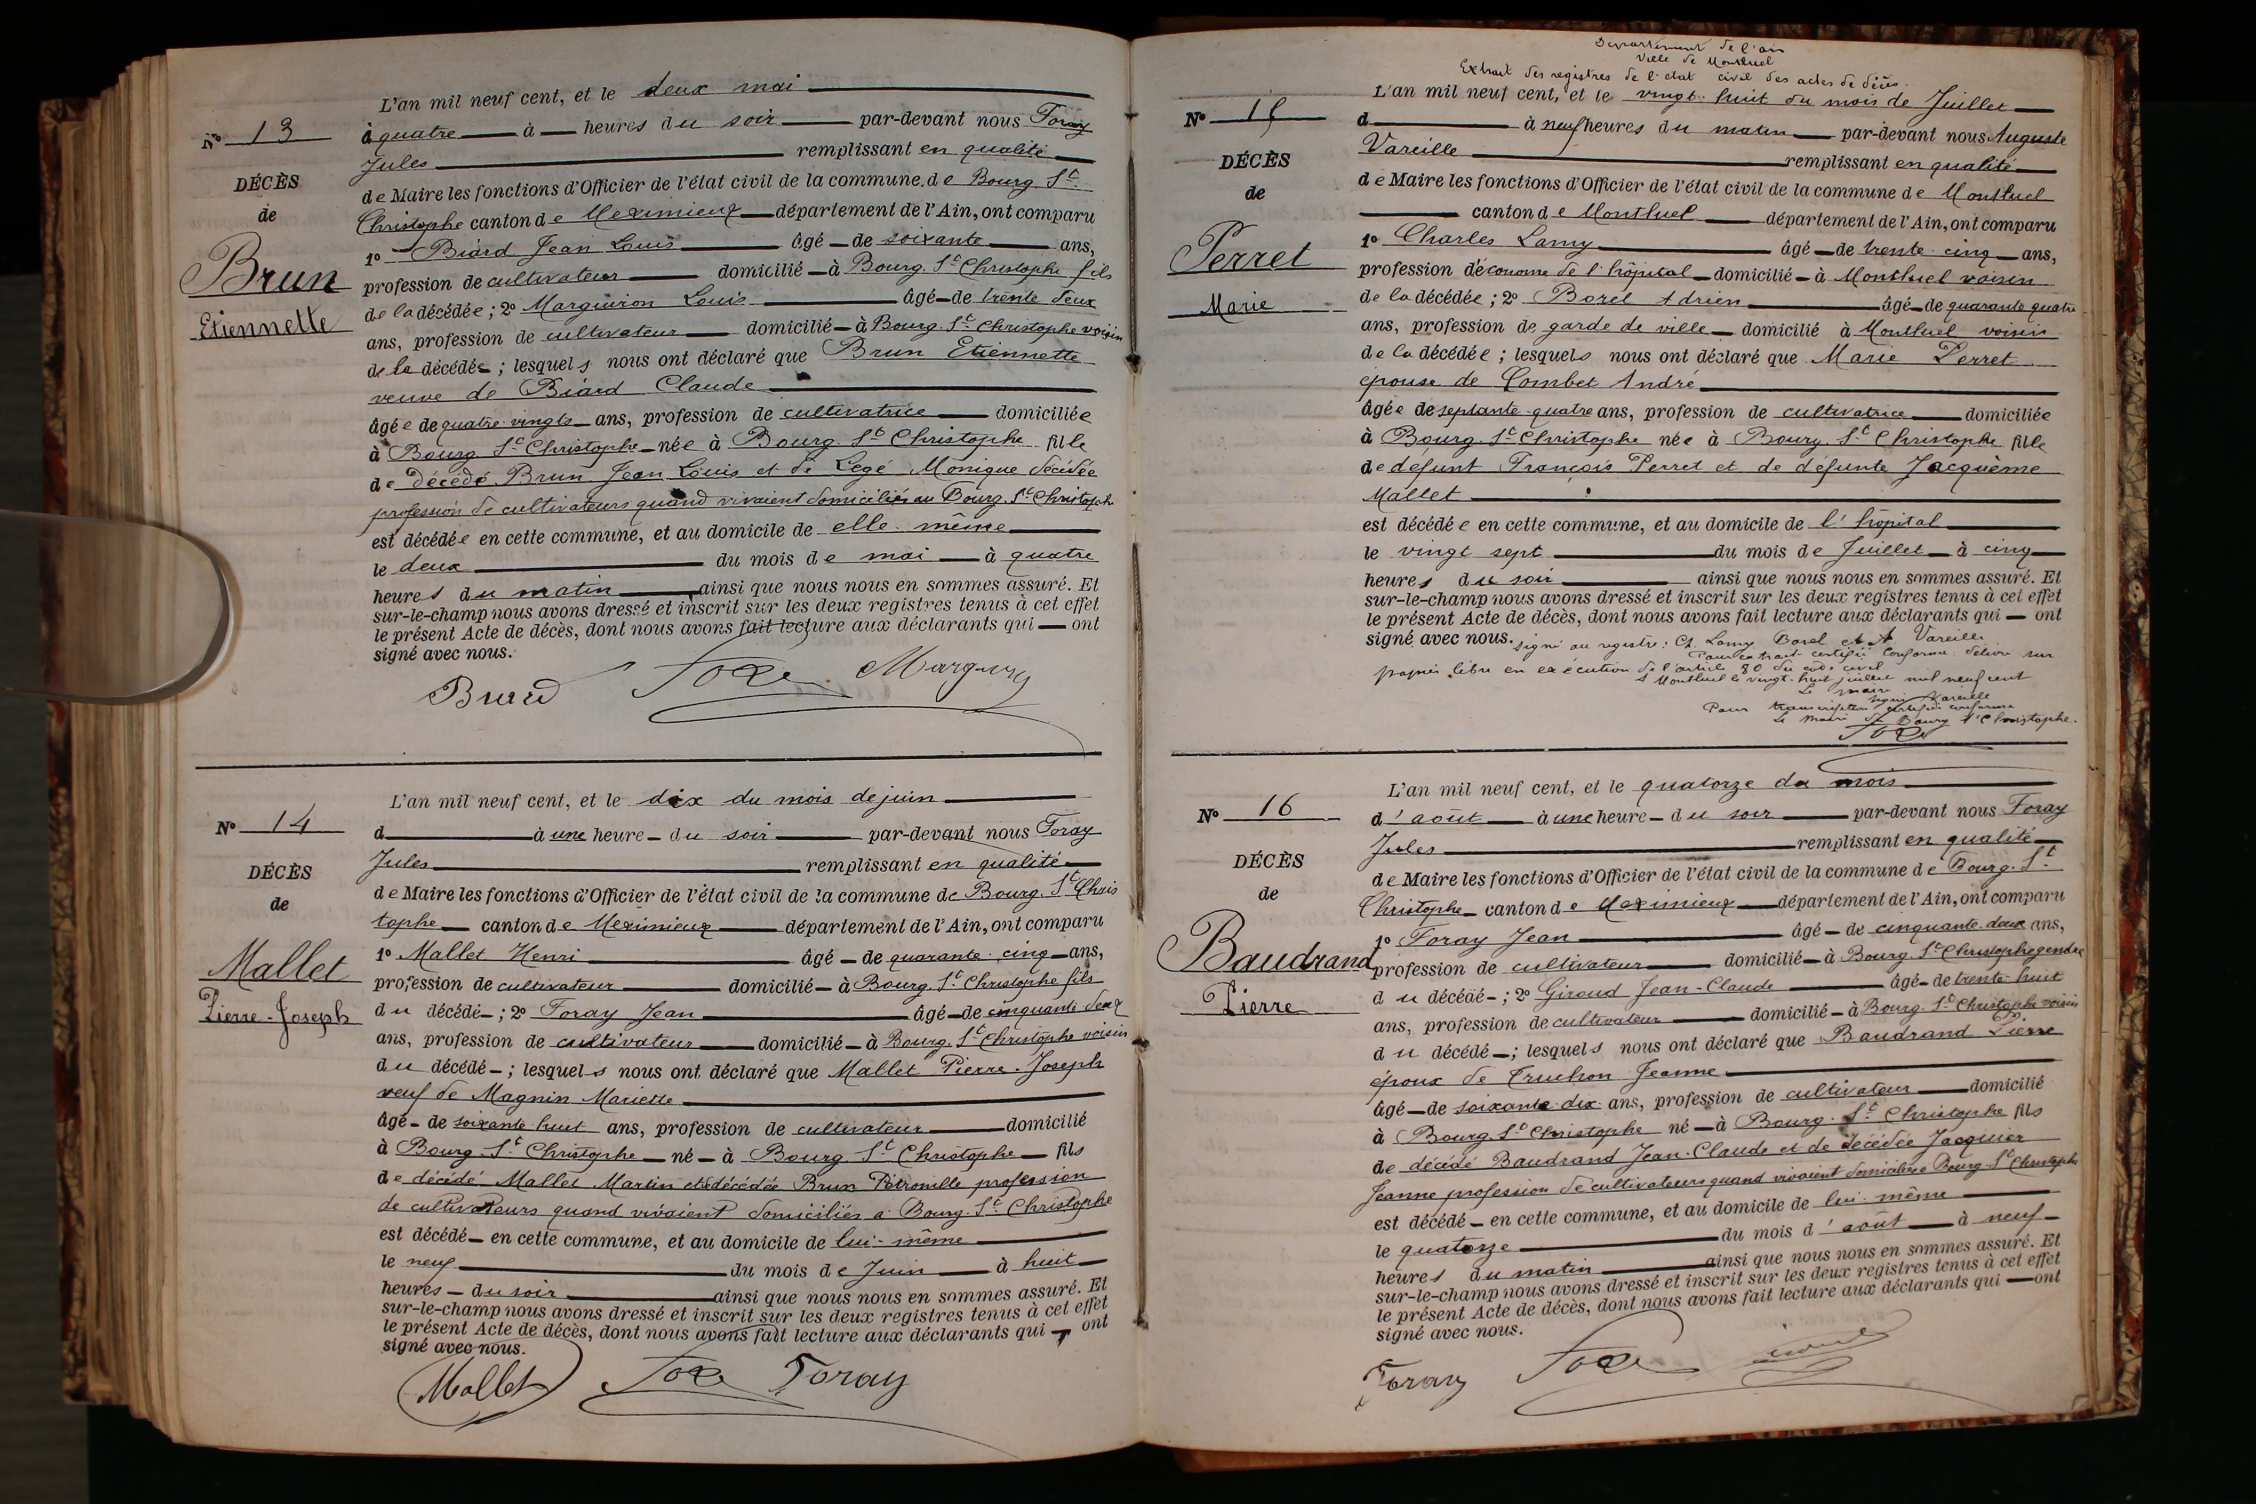 L'an mil neuf cent, et le deux mai
N° 13
à quatre à heures du soir par-devant nous Foray
Jules remplissant en qualité
DÉCÈS
de Maire les fonctions d'Officier de l'état civil de la commune de Bourg. St
de
Christophe canton de Meximieux département de l'Ain, ont comparu
1° Biard Jean Louis âgé de soixante ans,
Brun
profession de cultivateur domicilié à Bourg. St Christophe fils
Etiennette
de la décédée ; 2° Marguiron Louis âgé de trente deux
ans, profession de cultivateur domicilié à Bourg. St Christophe voisin
de la décédée ; lesquels nous ont déclaré que Brun Etiennette
veuve de Biard Claude
âgée de quatre-vingts ans, profession de cultivatrice domiciliée
à Bourg St Christophe née à Bourg. St Christophe fille
de décédé Brun Jean Louis et de Lege Monique décédée
profession de cultivateurs quand vivaient domiciliés au Bourg. St Christoph
est décédée en cette commune, et au domicile de elle-même
le deux du mois de mai à quatre
heures du matin ainsi que nous nous en sommes assuré. Et
sur-le-champ nous avons dressé et inscrit sur les deux registres tenus à cet effet
le présent Acte de décès, dont nous avons fait lecture aux déclarants qui ont
signé avec nous.
L'an mil neuf cent, et le dix du mois de juin
N° 14
d à une heure du soir par-devant nous Foray
Jules remplissant en qualité
DÉCÈS
de Maire les fonctions d'Officier de l'état civil de la commune de Bourg. St Chris
de
tophe canton de Meximieux département de l'Ain, ont comparu
Mallet
1° Mallet Henri âgé de quarante-cinq ans,
profession de cultivateur domicilié à Bourg. St Christophe fils
Pierre-Joseph
du décédé ; 2° Foray Jean âgé de cinquante deux
ans, profession de cultivateur domicilié à Bourg. St Christophe voisin
du décédé ; lesquels nous ont déclaré que Mallet Pierre-Joseph
veuf de Magnin Mariette
âgé de soixante huit ans, profession de cultivateur domicilié
à Bourg St Christophe né à Bourg St Christophe fils
de décédé Mallet Martin et décédée Brun Pétronille profession
de cultivateurs quand vivaient domiciliés à Bourg. St Christophe
est décédé en cette commune, et au domicile de lui-même
le neuf du mois de Juin à huit
heures du soir ainsi que nous nous en sommes assuré. Et
sur-le-champ nous avons dressé et inscrit sur les deux registres tenus à cet effet
le présent Acte de décès, dont nous avons fait lecture aux déclarants qui ont
signé avec nous.
Mallet Foray
Departement de l'ain
Ville de Montluel
Extrait des registres de l'etat civil des actes de décès.
L'an mil neuf cent, et le vingt-huit du mois de Juillet
N° 15
d à neuf heures du matin par-devant nous Auguste
DÉCÈS
Vareille remplissant en qualité
de
de Maire les fonctions d'Officier de l'état civil de la commune de Montluel
canton de Montluel département de l'Ain, ont comparu
Perret
1° Charles Lamy âgé de trente-cinq ans,
profession d'économe de l'hôpital domicilié à Montluel voisin
Marie
de la décédée ; 2° Borel Adrien âgé de quarante quatre
ans, profession de garde de ville domicilié à Montluel voisin
de la décédée ; lesquels nous ont déclaré que Marie Perret
épouse de Combet André
âgée de septante-quatre ans, profession de cultivatrice domiciliée
à Bourg. St Christophe née à Bourg. St Christophe fille
de défunt François Perret et de défunte Jacquème
Mallet
est décédée en cette commune, et au domicile de l'hôpital
le vingt sept du mois de Juillet à cinq
heures du soir ainsi que nous nous en sommes assuré. Et
sur-le-champ nous avons dressé et inscrit sur les deux registres tenus à cet effet
le présent Acte de décès, dont nous avons fait lecture aux déclarants qui ont
signé avec nous. signé au registre : Ch. Lamy Borel et A Vareille
Pour extrait certifié conforme délivré sur
papier libre en exécution de l'article 80 du code civil
à Montluel le vingt-huit juillet mil neuf cent
Le maire
signé Vareille
Pour transcription certifié conforme
Le maire de Bourg St Christophe.
L'an mil neuf cent, et le quatorze du mois
N° 16
d'août à une heure du soir par-devant nous Foray
Jules remplissant en qualité
DÉCÈS
de Maire les fonctions d'Officier de l'état civil de la commune de Bourg. St
de
Christophe canton de Meximieux département de l'Ain, ont comparu
1° Foray Jean âgé de cinquante-deux ans,
Baudrand
profession de cultivateur domicilié à Bourg. St Christophe gendre
Pierre
du décédé ; 2° Giroud Jean-Claude âgé de trente-huit
ans, profession de cultivateur domicilié à Bourg. St Christophe voisin
du décédé ; lesquels nous ont déclaré que Baudrand Pierre
époux de Truchon Jeanne
âgé de soixante-dix ans, profession de cultivateur domicilié
à Bourg. St Christophe né à Bourg. St Christophe fils
de décédé Baudrand Jean-Claude et de décédée Jacquier
Jeanne profession de cultivateurs quand vivaient domiciliés à Bourg-St Christophe
est décédé en cette commune, et au domicile de lui-même
le quatorze du mois d'août à neuf
heures du matin ainsi que nous nous en sommes assuré. Et
sur-le-champ nous avons dressé et inscrit sur les deux registres tenus à cet effet
le présent Acte de décès, dont nous avons fait lecture aux déclarants qui ont
signé avec nous.
Foray